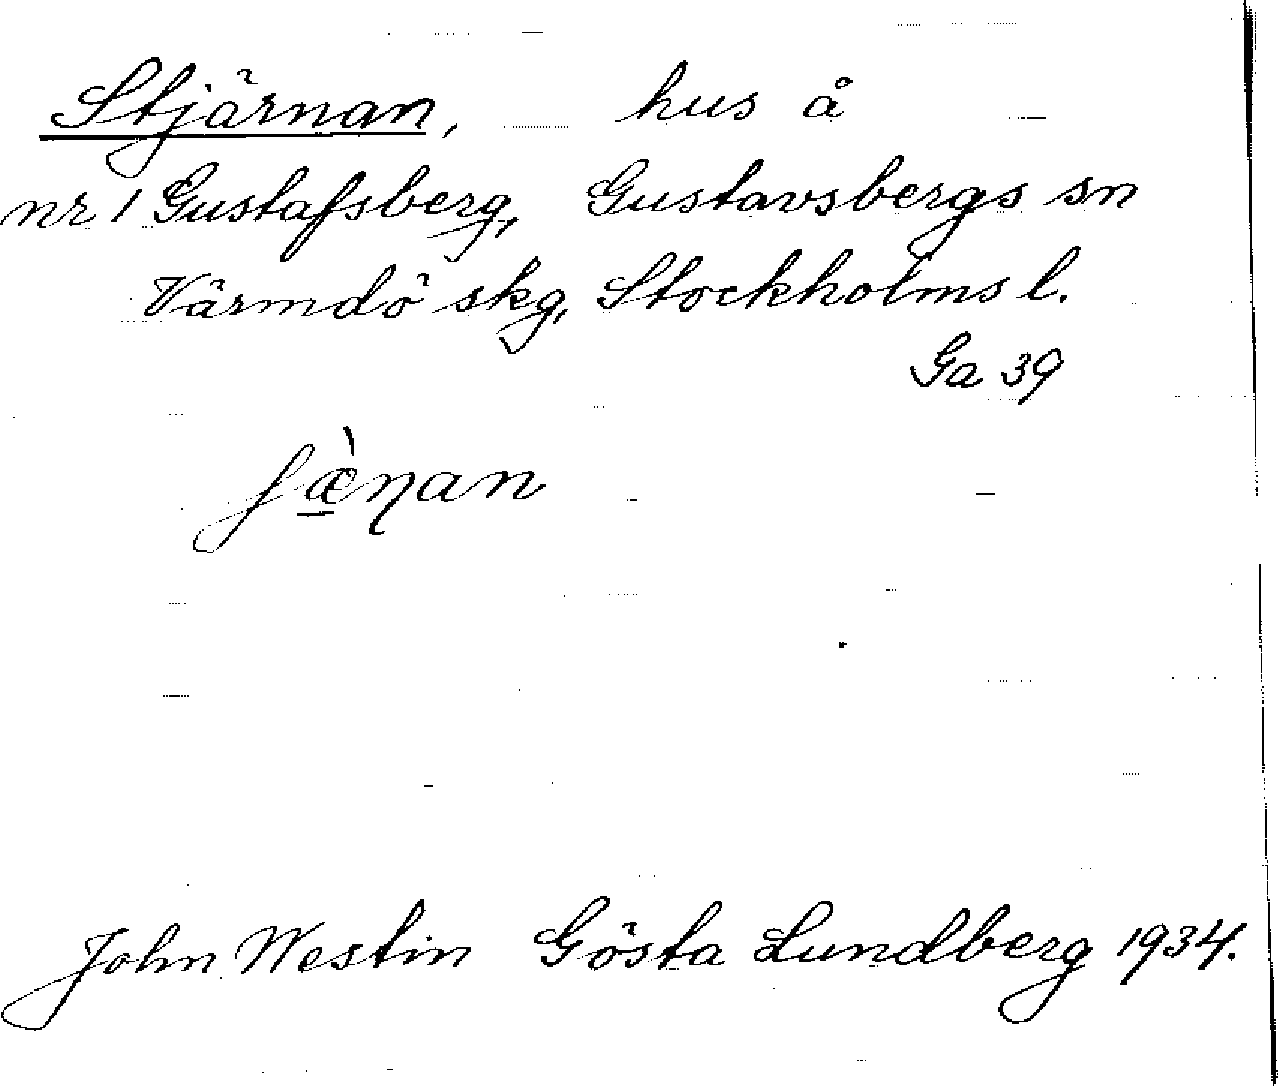 Stjärnan, hus å
nr 1 Gustafsberg, Gustavsbergs sn
Värmdö skg, Stockholms l.
Ga 39
ʃæ̠̀ɳan
John Westin Gösta Lundberg 1934.